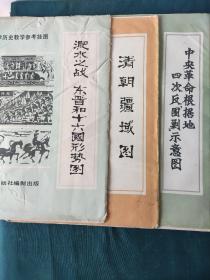 学历史教学参考挂图
淝水之战
东晋和十六國形势图
社编制出版
清朝疆域图
中央革命根据地
四次反围剿示意图